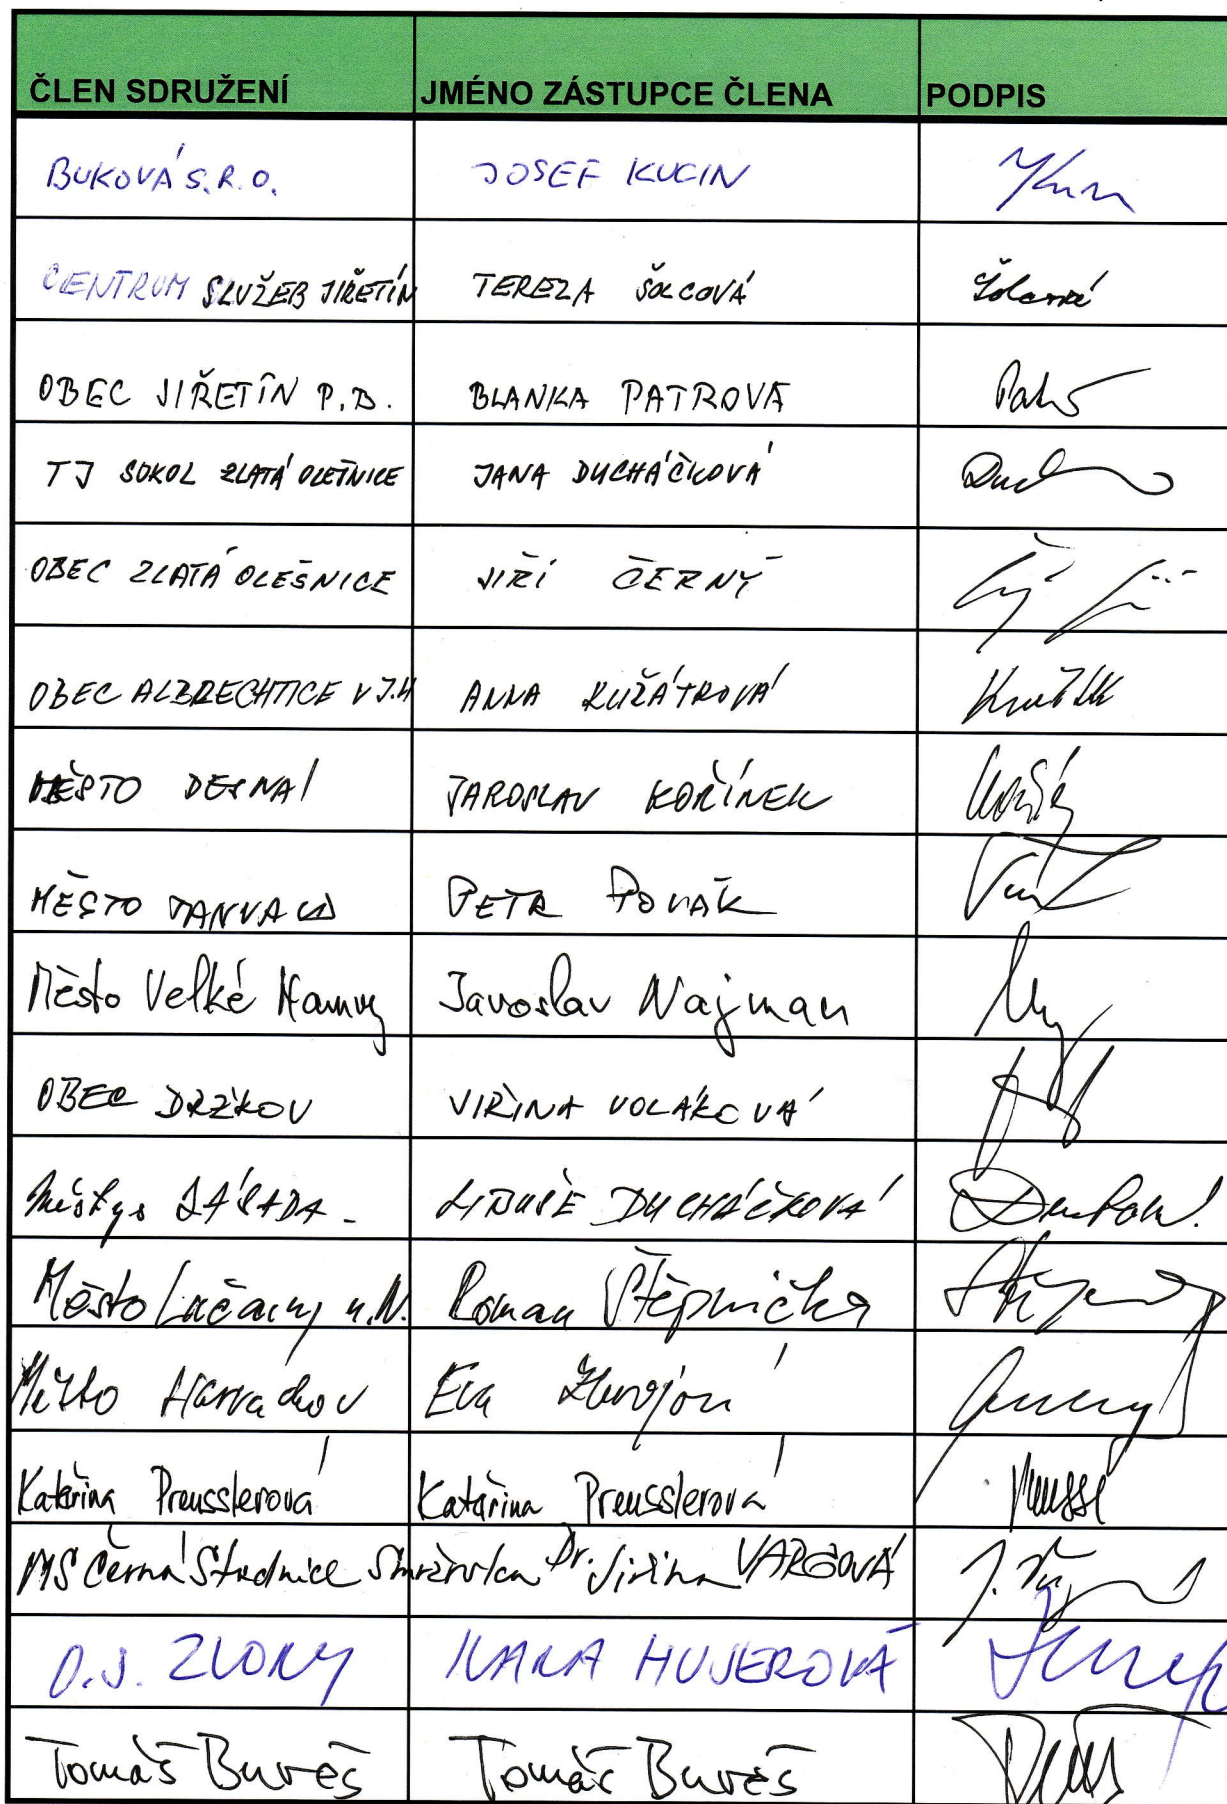 ČLEN SDRUŽENÍ JMÉNO ZÁSTUPCE ČLENA PODPIS
BUKOVÁ S.R.O. JOSEF KUCIN
CENTRUM SLUŽEB JIŘETÍN TEREZA ŠOLCOVÁ
OBEC JIŘETÍN P.B. BLANKA PATROVÁ
TJ SOKOL ZLATÁ OLEŠNICE JANA DUCHÁČKOVÁ
OBEC ZLATÁ OLEŠNICE JIŘÍ ČERNÝ
OBEC ALBRECHTICE V J.H ANNA
MĚSTO DESNÁ JAROSLAV KOŘÍNEK
MĚSTO TANVALD PETR POLÁK
Město Velké Hamry Jaroslav Najman
OBEC DRŽKOV VIŘINA VOLÁKOVÁ
Městys ZÁSADA LIBUŠE DUCHÁČKOVÁ
Město Lučany n.N. Roman Štěpnička
Město Harrachov Eva
Kateřina Preusslerová Kateřina Preusslerová
MS Černá Studnice Smržovka Dr. Jiřina VARGOVÁ
O.S. ZVONY IVANA HUJEROVÁ
Tomáš Bureš Tomáš Bureš